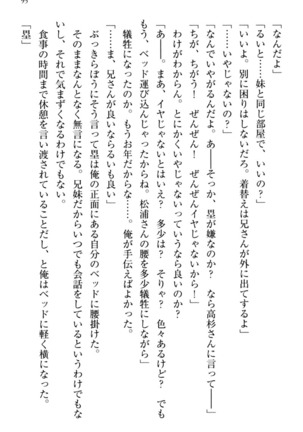 「なんだよ」
「るいと……妹と同じ部屋で、いいの？」
「いいよ。別に困りはしないだろ。着替えは兄さんが外に出てするよ」
「……いやじゃないの？」
「なんでいやがるんだよ。あ——そっか、塁が嫌なのか？　なら高杉さんに言って——」
「ちが、ちがう！　ぜんぜん！　ぜんぜんイヤじゃないから！」
わけがわからん。とにかくいやじゃないっていうなら良いのか？
「あ——。まあ、イヤじゃないとはいえ？　多少は？　そりゃ？　色々あるけど？　でも
もう、ベッド運び込んじゃったからね。松浦さんの腰を多少犠牲にしながら」
犠牲になったのか。もうお年だからな……。俺が手伝えばよかった。
「だから……ま、兄さんが良いならるいも良い」
ぶっきらぼうにそう言って塁は俺の正面にある自分のベッドに腰掛けた。
そのままなんとなく無言になる。兄妹だからいつでも会話をしているというわけでもな
いし、それで気まずくなるわけでもない。
食事の時間まで休憩を言い渡されていることだし、と俺はベッドに軽く横になった。
「塁」